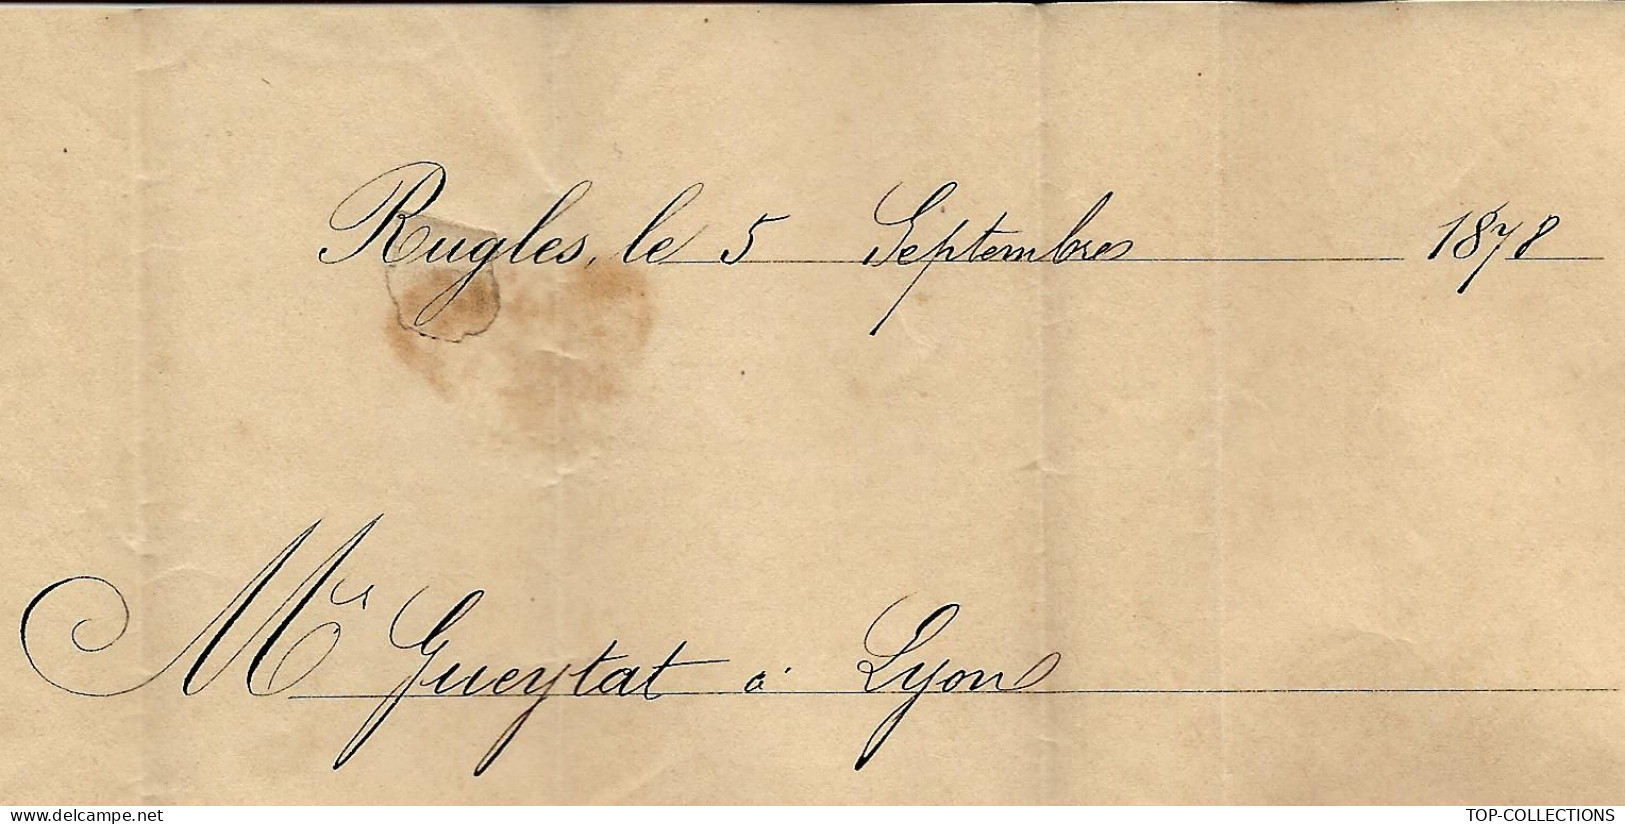 Rugles, le 5 Septembre 1878
Mr Gueytat à Lyon
delcampe.net
TOP-COLLECTIONS